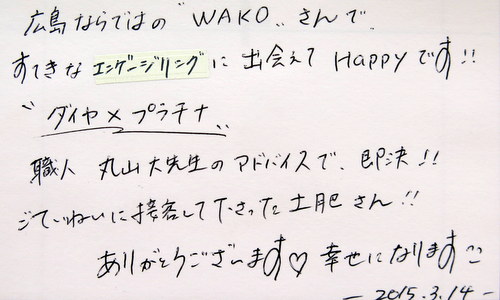 広島ならではの〝WAKO〟さんで
すてきなエンゲージリングに出会えてHappyです!!
〝ダイヤ×プラチナ〟
職人 丸山大先生のアドバイスで、即決!!
ごていねいに接客して下さった土肥さん!!
ありがとうございます♡幸せになります
－2015.3.14－